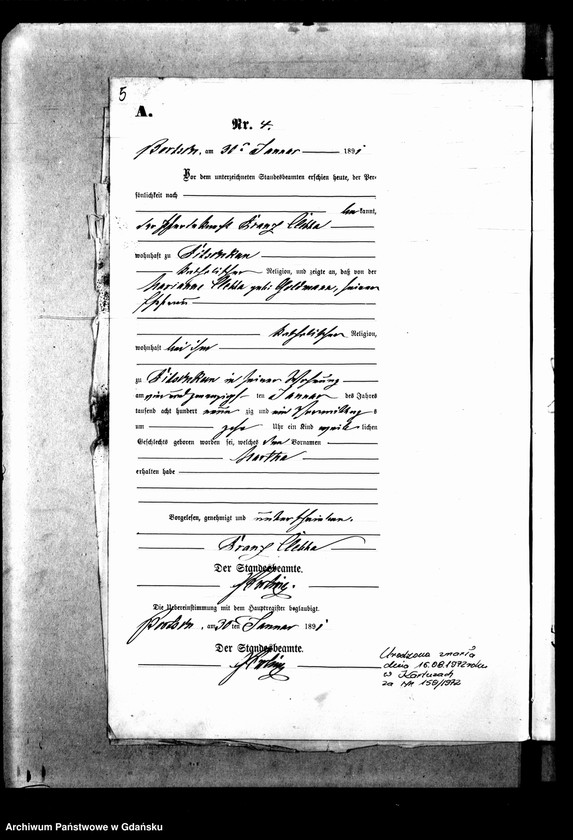 5
A.
Nr. 4.
am 30ten Januar 1891
Vor dem unterzeichneten Standesbeamten erschien heute, der Per-
sönlichkeit nach
bekannt,
der Pferdeknecht Franz
wohnhaft zu
katholischer Religion, und zeigte an, daß von der
Marianna geb: Goldmann, seiner
Ehefrau
katholischer Religion,
wohnhaft bei ihm
zu in seiner Wohnung
am ein und zwanzigsten ten Januar des Jahres
tausend acht hundert neun zig und ein Vormittags
um zehn Uhr ein Kind weiblichen
Geschlechts geboren worden sei, welches den Vornamen
Martha
erhalten habe
Vorgelesen, genehmigt und unterschrieben.
Franz
Der Standesbeamte.
Die Uebereinstimmung mit dem Hauptregister beglaubigt.
am 30ten Januar 1891
Der Standesbeamte.
Urodzona zmarła
dnia 16.08.1972 roku
w Kartuzach
za nr 159/1972
Archiwum Państwowe w Gdańsku